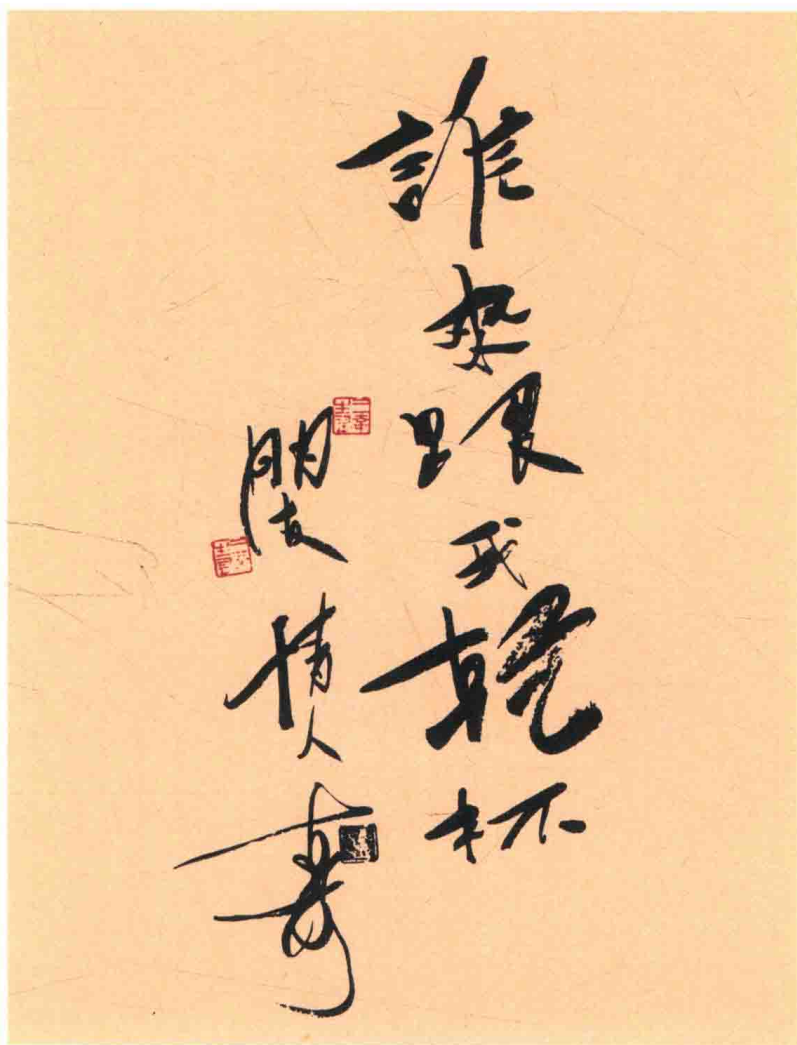 誰跟我乾杯
朋友情人壽